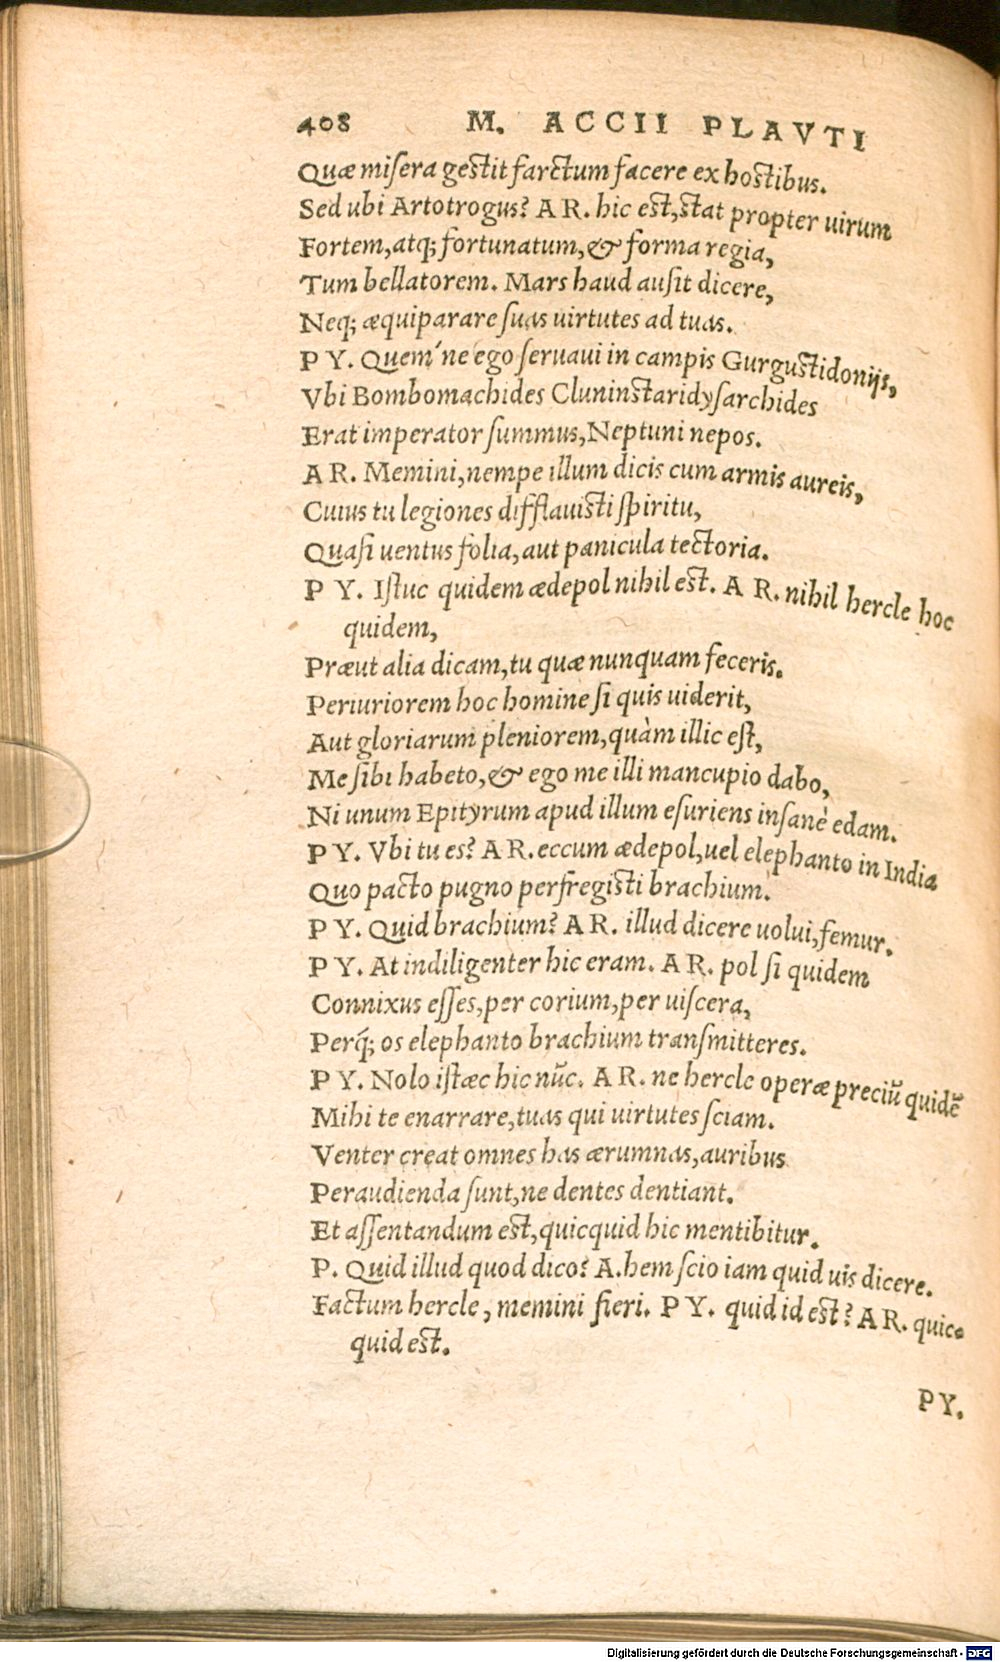 408 M. ACCII PLAVTI
Quæ misera gestit farctum facere ex hostibus.
Sed ubi Artotrogus? AR. hic est, stat propter uirum
Fortem, atq; fortunatum, & forma regia,
Tum bellatorem. Mars haud ausit dicere,
Neq; æquiparare suas uirtutes ad tuas.
PY. Quem'ne ego seruaui in campis Gurgustidonijs,
Vbi Bombomachides Cluninstaridysarchides
Erat imperator summus, Neptuni nepos.
AR. Memini, nempe illum dicis cum armis aureis,
Cuius tu legiones difflauisti spiritu,
Quasi uentus folia, aut panicula tectoria.
PY. Istuc quidem ædepol nihil est. AR. nihil hercle hoc
quidem,
Præut alia dicam, tu quæ nunquam feceris.
Periuriorem hoc homine si quis uiderit,
Aut gloriarum pleniorem, quàm illic est,
Me sibi habeto, & ego me illi mancupio dabo,
Ni unum Epityrum apud illum esuriens insanè edam.
PY. Vbi tu es? AR. eccum ædepol, uel elephanto in India
Quo pacto pugno perfregisti brachium.
PY. Quid brachium? AR. illud dicere uolui, femur.
PY. At indiligenter hic eram. AR. pol si quidem
Connixus esses, per corium, per uiscera,
Perq́; os elephanto brachium transmitteres.
PY. Nolo istæc hic nūc. AR. ne hercle operæ preciū quidē
Mihi te enarrare, tuas qui uirtutes sciam.
Venter creat omnes has ærumnas, auribus
Peraudienda sunt, ne dentes dentiant.
Et assentandum est, quicquid hic mentibitur.
P. Quid illud quod dico? A. hem scio iam quid uis dicere.
Factum hercle, memini fieri. PY. quid id est? AR. quic-
quid est.
PY.
Digitalisierung gefördert durch die Deutsche Forschungsgemeinschaft - DFG